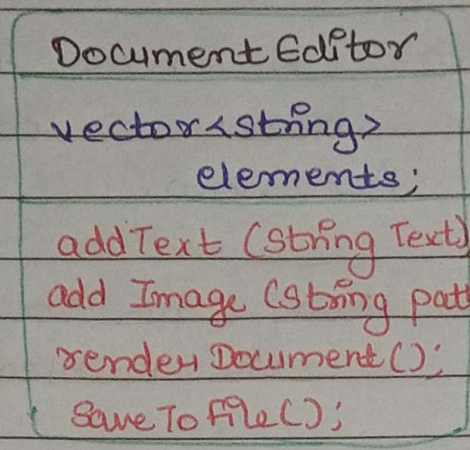 Document Editor
vector<string>
elements;
addText (string Text)
add Image (string pat
render Document();
Save To File();